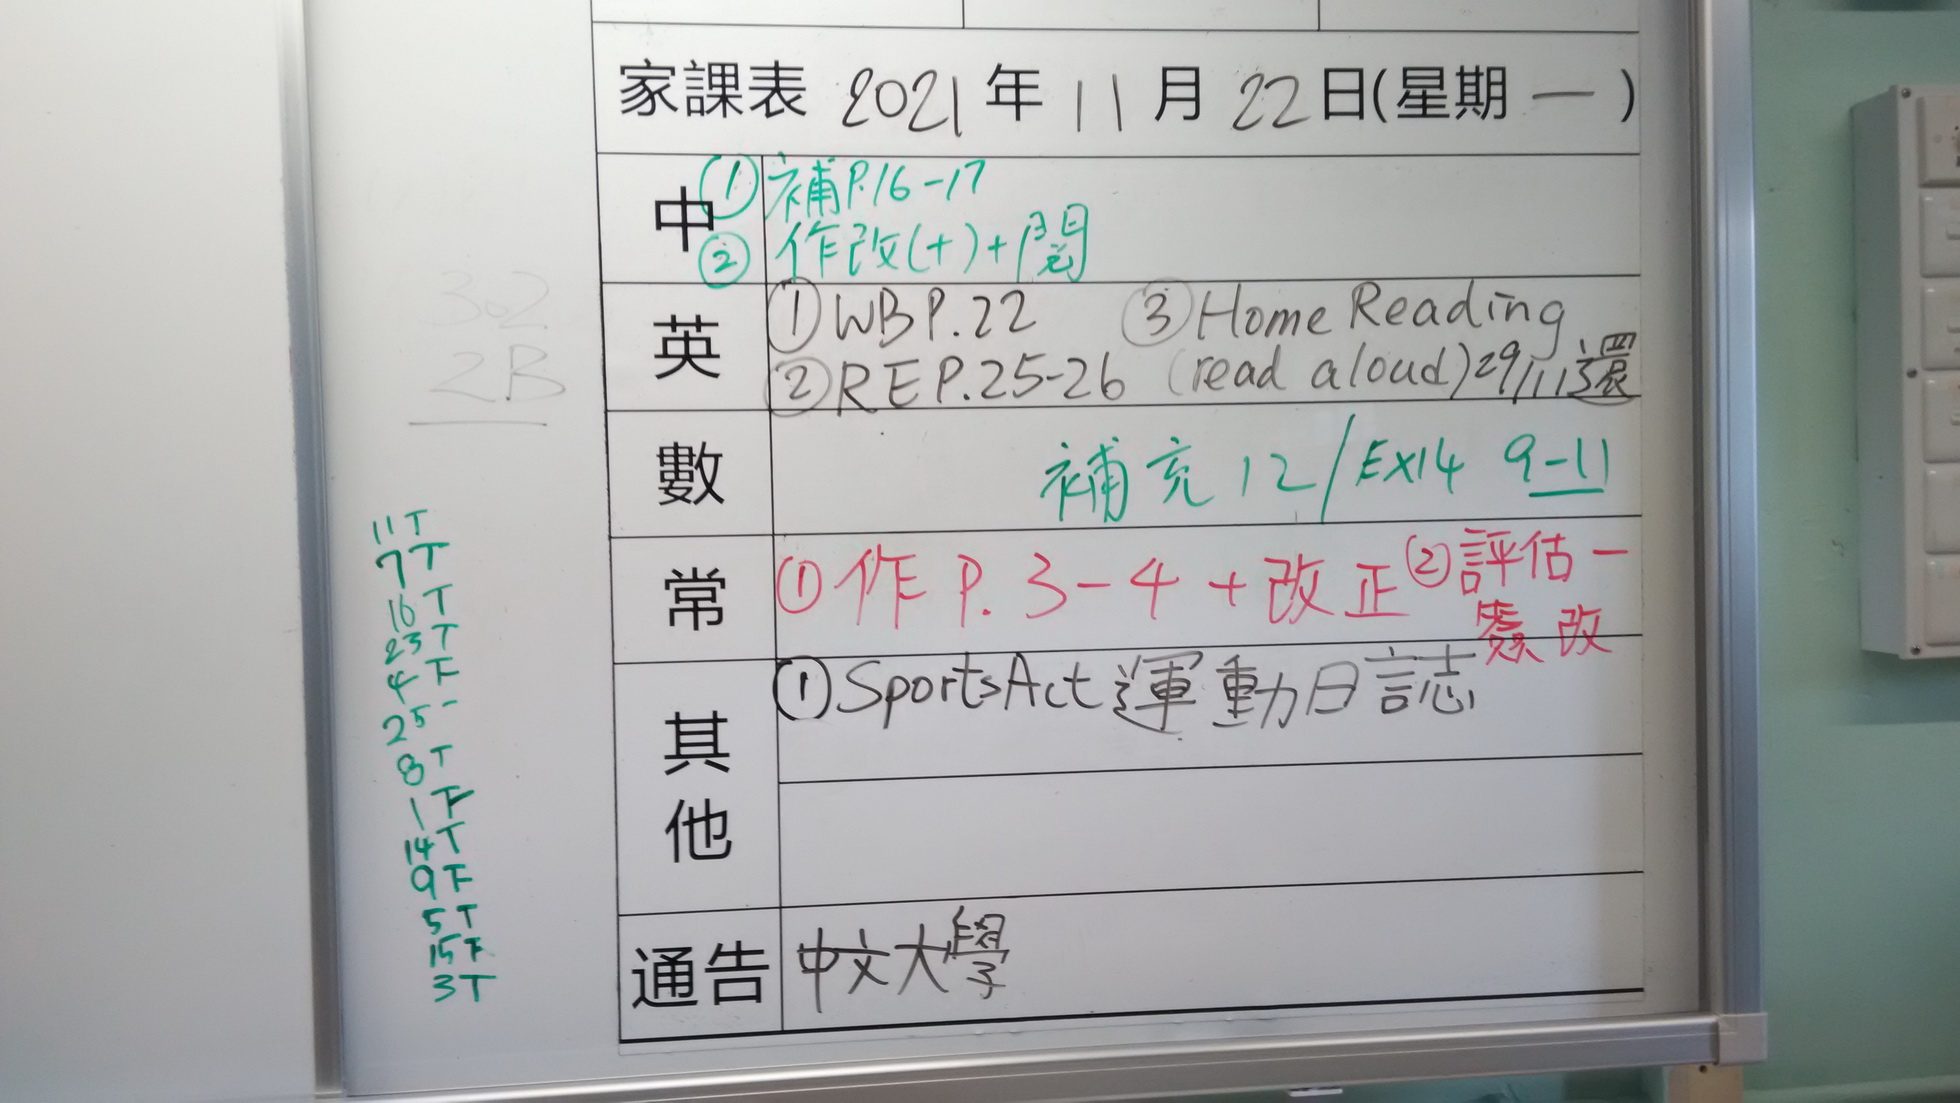 家課表 2021年11月22日(星期一)
中
① 補P.16-17
② 作改(+)+閱
英
① WB P.22
② RE P.25-26
③ Home Reading
(read aloud) 29/11還
數
補充12/Ex14 9-11
常
① 作P.3-4+改正 ② 評估一
簽改
其他
① SportsAct運動日誌
通告
中文大學
3.2
2B
11 T
7 T
16 T
23 T
4 F
25 -
8 T
1 F
14 T
9 F
5 T
15 F
3 T